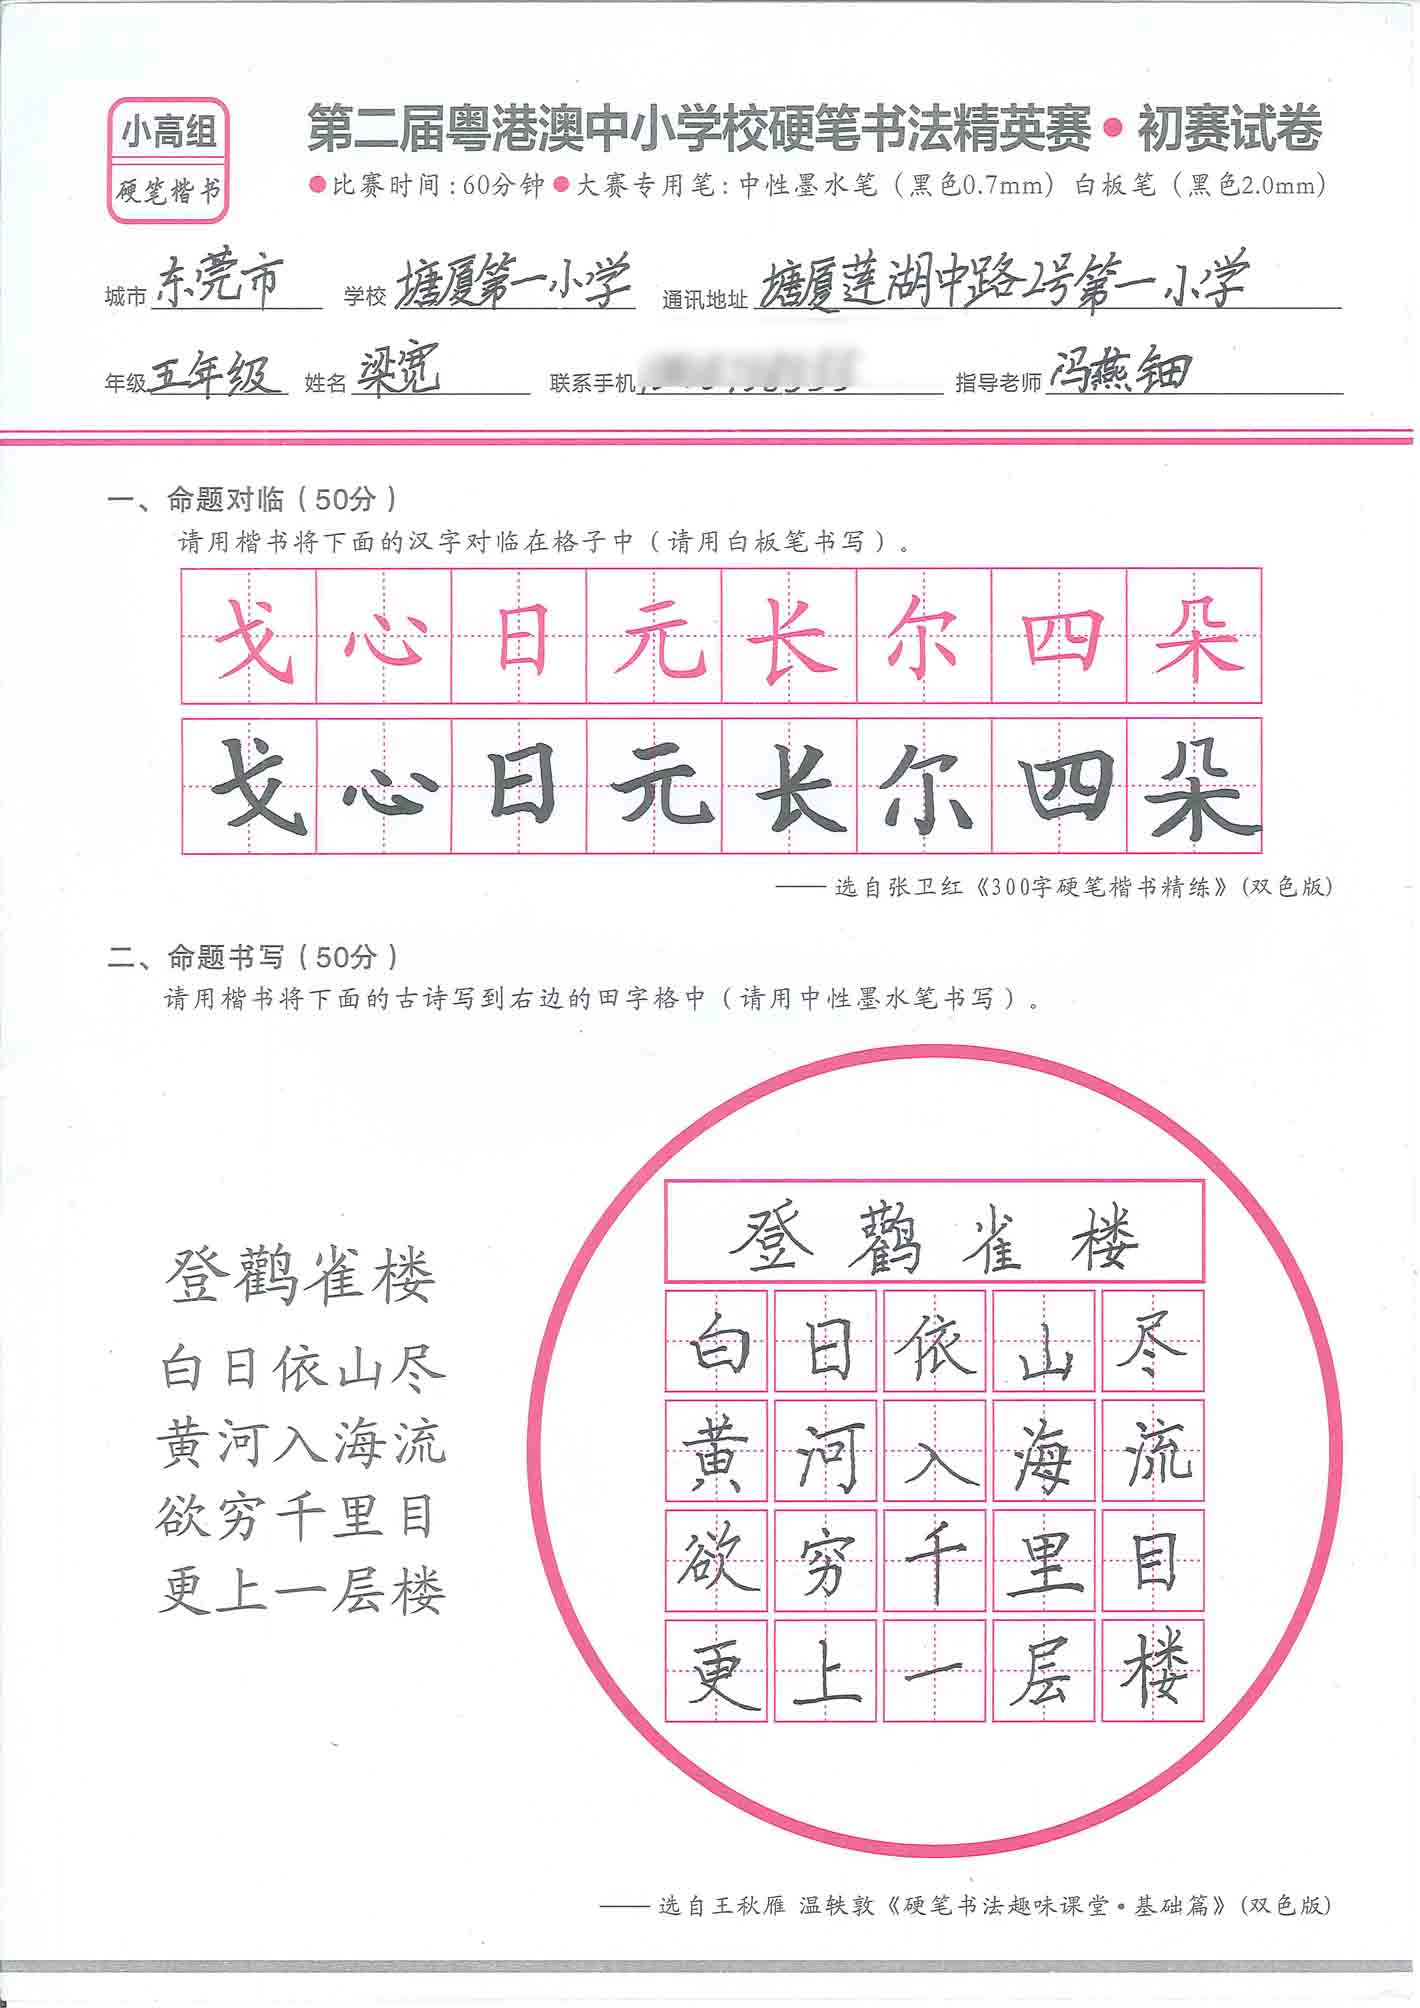 小高组
硬笔楷书
第二届粤港澳中小学校硬笔书法精英赛•初赛试卷
●比赛时间:60分钟●大赛专用笔:中性墨水笔（黑色0.7mm）白板笔（黑色2.0mm）
城市 东莞市 学校 塘厦第一小学 通讯地址 塘厦莲湖中路2号第一小学
年级 五年级 姓名 梁宽 联系手机 指导老师 冯燕钿
一、命题对临（50分）
请用楷书将下面的汉字对临在格子中（请用白板笔书写）。
戈心日元长尔四朵
戈心日元长尔四朵
—— 选自张卫红《300字硬笔楷书精练》(双色版)
二、命题书写（50分）
请用楷书将下面的古诗写到右边的田字格中（请用中性墨水笔书写）。
登鹳雀楼
白日依山尽
黄河入海流
欲穷千里目
更上一层楼
登鹳雀楼
白日依山尽
黄河入海流
欲穷千里目
更上一层楼
—— 选自王秋雁 温轶敦《硬笔书法趣味课堂•基础篇》(双色版)